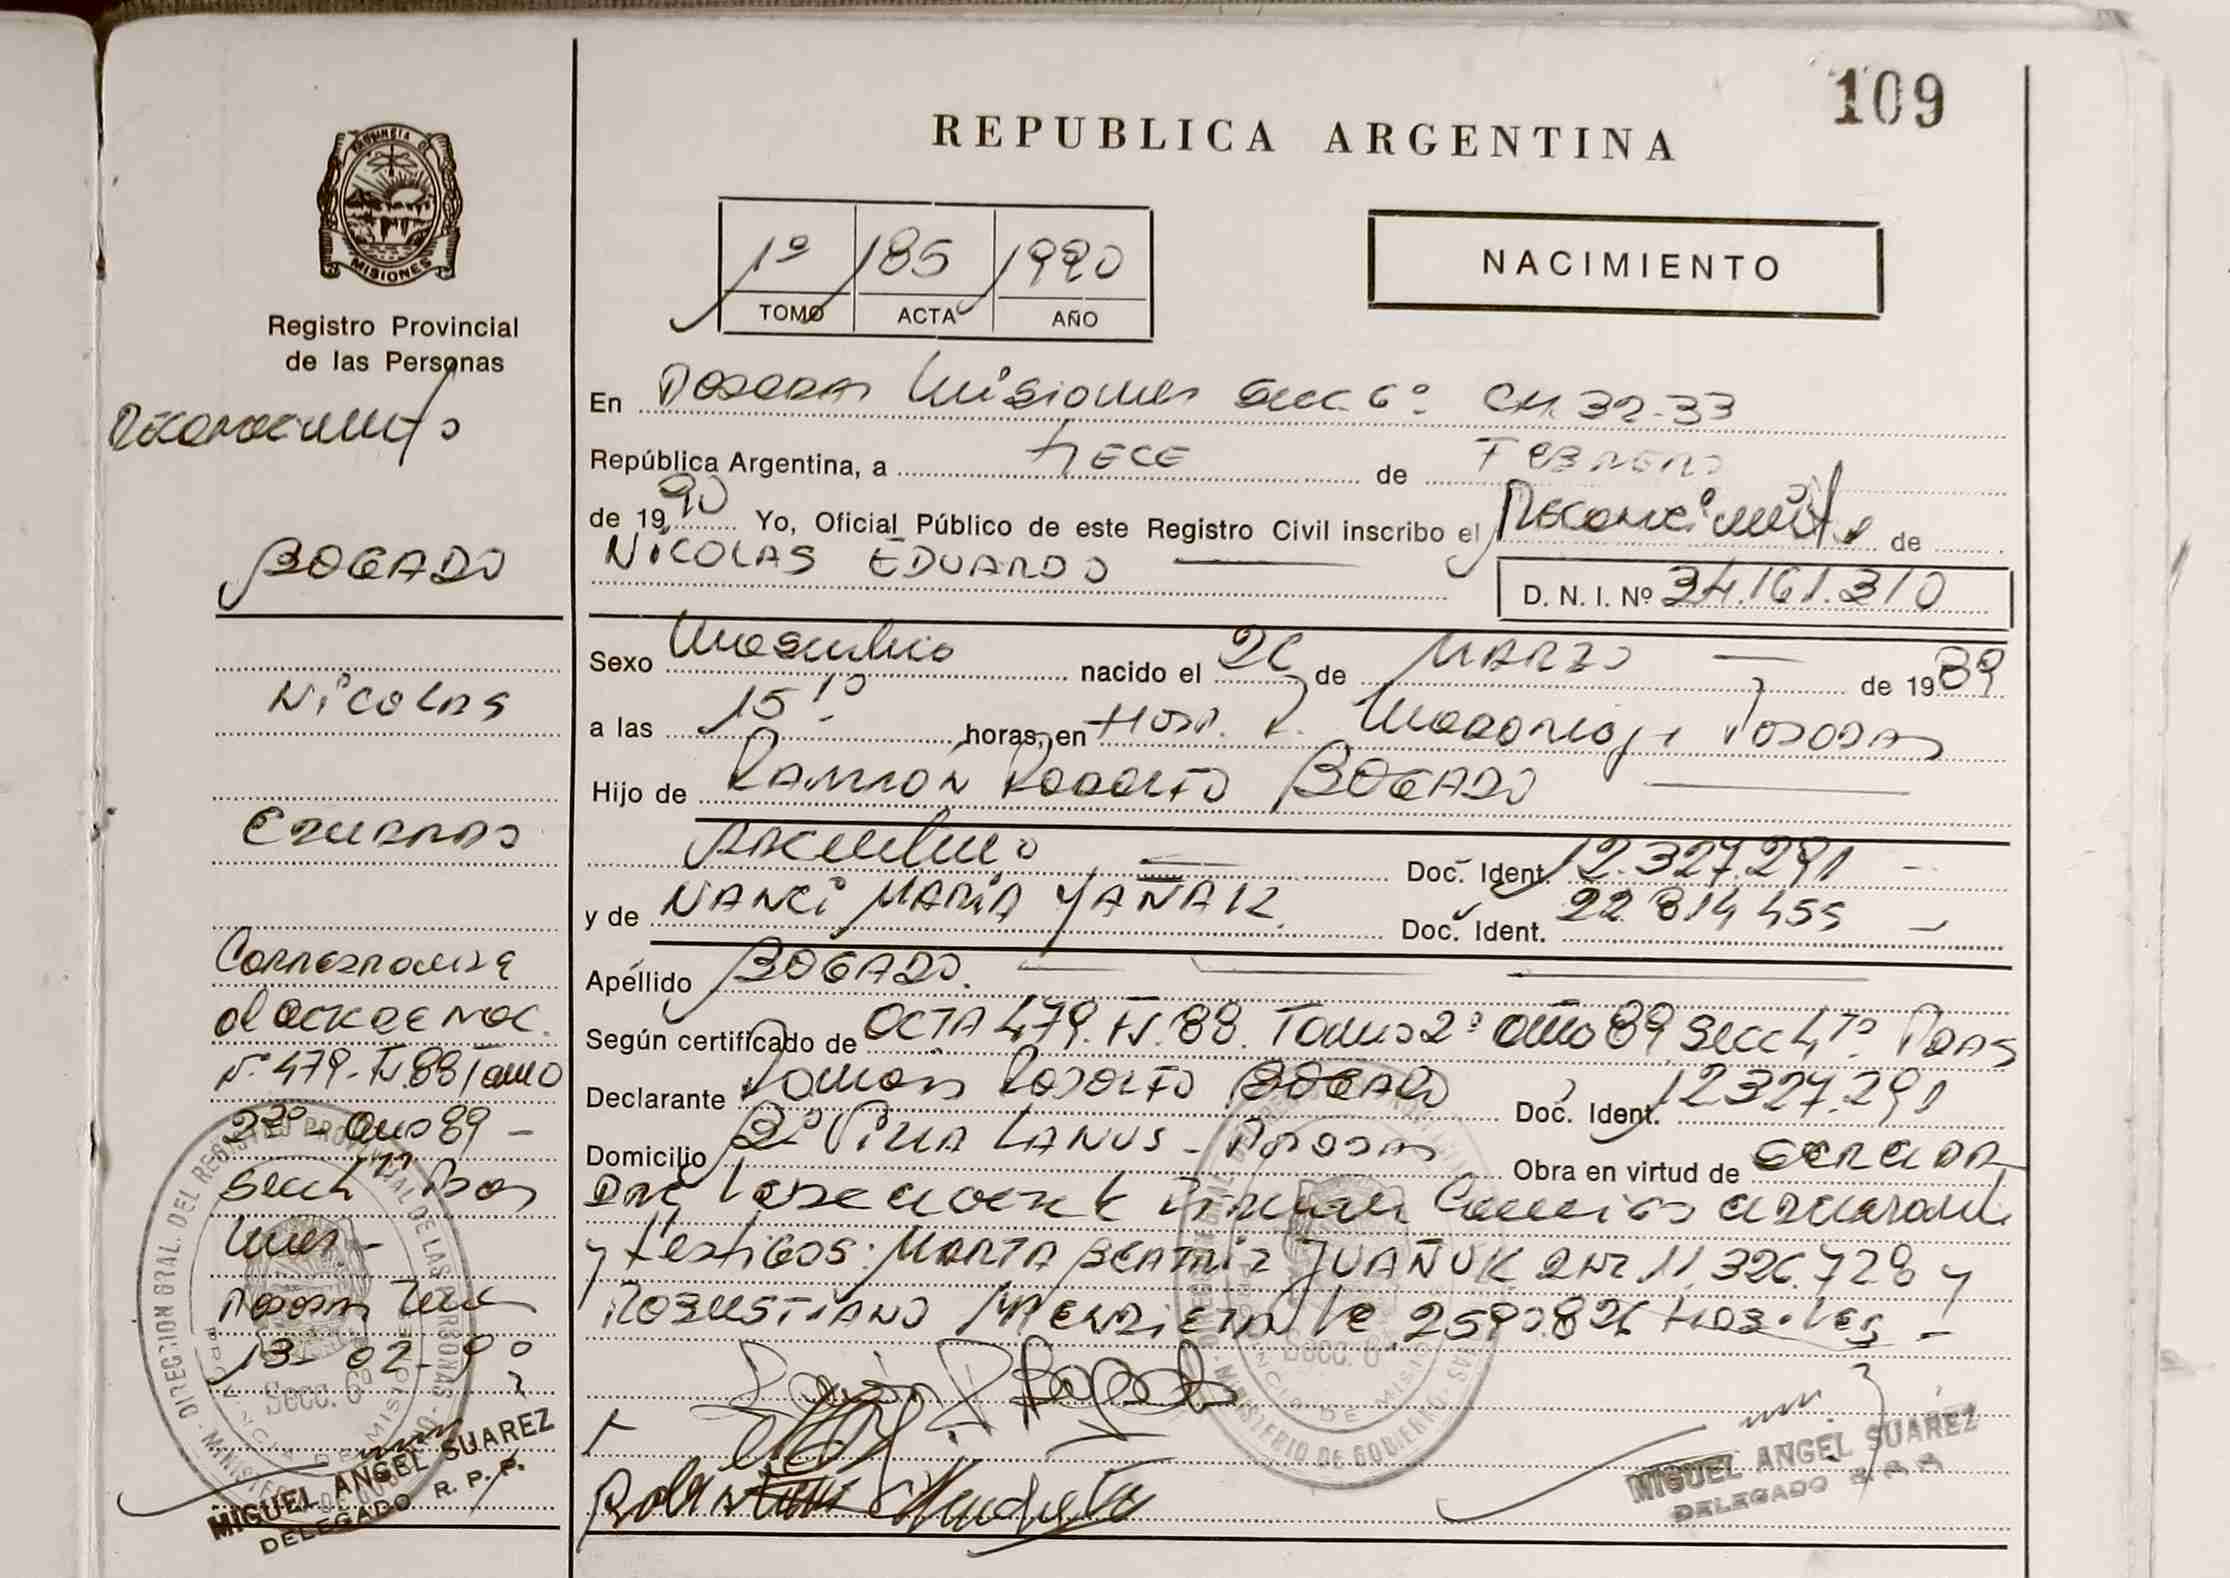 109
REPUBLICA ARGENTINA
PROVINCIA DE
MISIONES
Registro Provincial
de las Personas
1º 185 1990
TOMO ACTA AÑO
NACIMIENTO
Reconocimiento
BOGADO
NicOLAS
EDUARDO
Corresponde
al acta de Nac.
Nº 479-Fº.88 Tomo
2º - Año 89 -
Secc 4ta Pdas
Mnes -
Posadas Mnes
13-02-90
MIGUEL ANGEL SUAREZ
DELEGADO R. P. P.
En Posadas Misiones Secc. 6º CH. 32-33
República Argentina, a trece de Febrero
de 1990 Yo, Oficial Público de este Registro Civil inscribo el Reconocimiento de
NICOLAS EDUARDO
D. N. I. Nº 34.161.310
Sexo Masculino nacido el 26 de MARZO de 1989
a las 15 10 horas, en Hosp. R. Madariaga Posadas
Hijo de RAMON Roberto BOGADO
Argentino Doc. Ident. 12.327.291
y de NANCi MARiA YAÑAK Doc. Ident. 22.814.455
Apéllido BOGADO.
Según certificado de ACTA 479. Fº.88. Tomo 2º año 89 Secc 4ta Pdas
Declarante Ramón Roberto BOGADO Doc. Ident. 12327.291
Domicilio Bº Villa LANUS - Posadas Obra en virtud de
y testigos: MARTA BEATRiz JUAÑUK DNI 11.326.728 y
ROBUSTIANO MENDIETA LE 2590826
Secc. 6ª
MIGUEL ANGEL SUAREZ
DELEGADO
DIRECCION GRAL. DEL REGISTRO PROVINCIAL DE LAS PERSONAS
PROVINCIA DE MISIONES
Secc. 6ª
MINISTERIO DE GOBIERNO